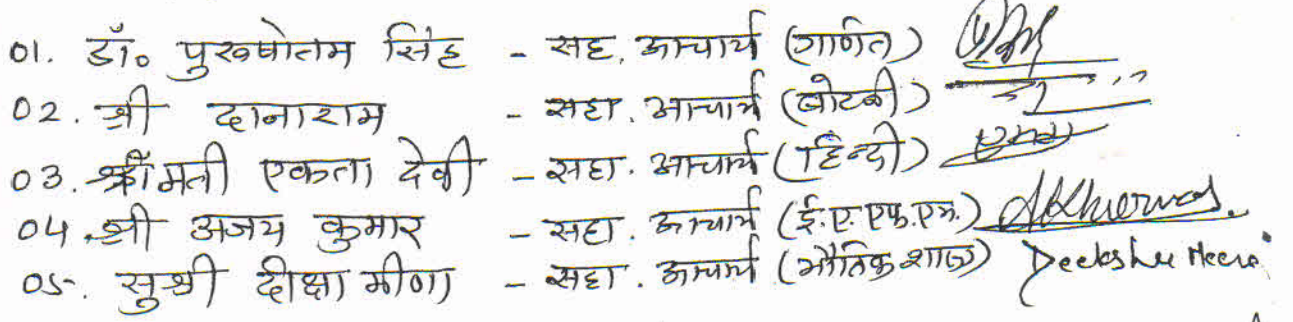 01. डॉ. पुरुषोतम सिंह - सह. आचार्य (गणित)
02. श्री दानाराम - सहा. आचार्य (बोटनी)
03. श्रीमती एकता देवी - सहा. आचार्य (हिन्दी)
04. श्री अजय कुमार - सहा. आचार्य (ई.ए.एफ.एम.)
05. सुश्री दीक्षा मीणा - सहा. आचार्य (भौतिक शास्त्र) Deeksha Meena